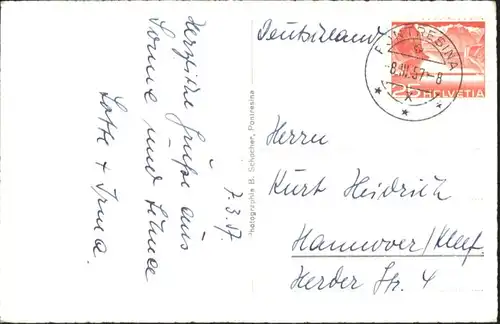 Herzliche Grüße aus
Sonne und Schnee
Lotte + Irma.
7.3.57.
Photographie B. Schocher, Pontresina
Deutschland
PONTRESINA
-8.III.57-8
HELVETIA
25
Herrn
Kurt Heidrich
Hannover/Kleef.
Herder Str. 4